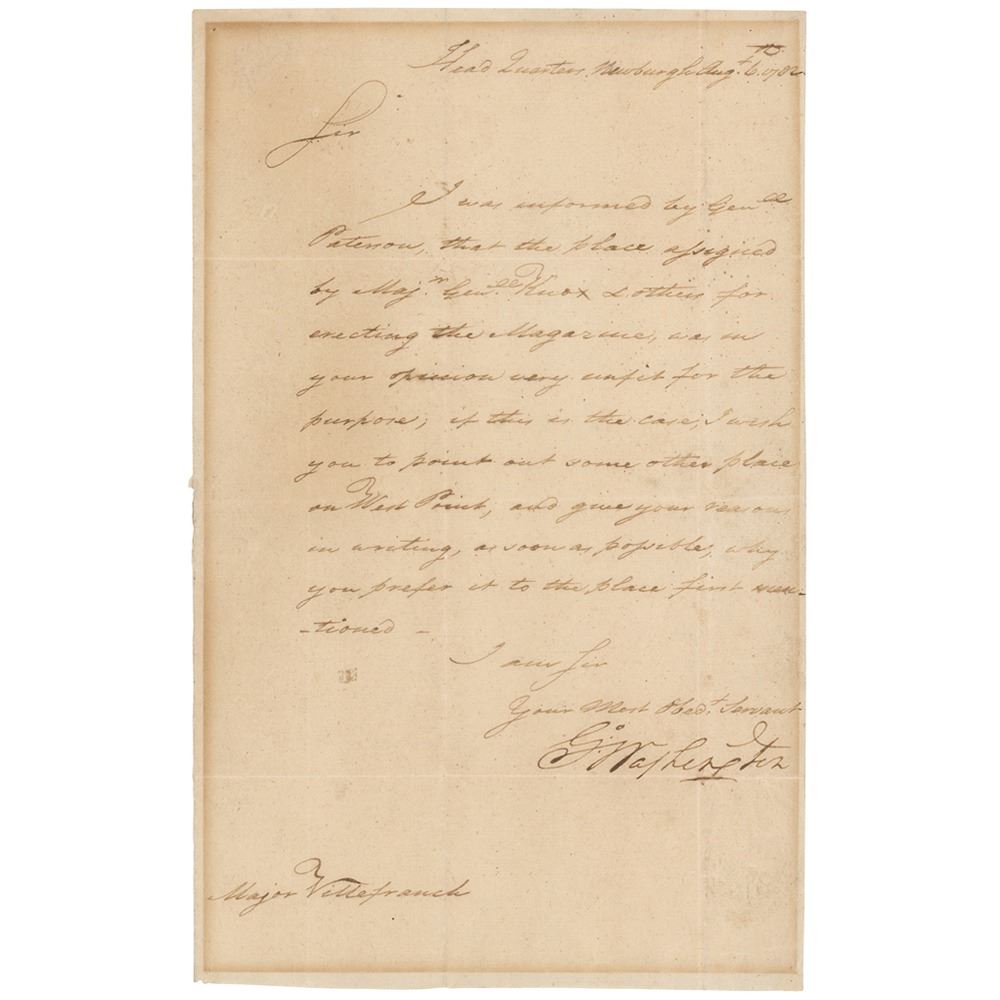 Head Quarters Newburgh Augt. 6th. 1782
Sir
I was informed by Genll
Paterson, that the place assigned
by Majr. Genll Knox & others for
erecting the Magazine, was in
your opinion very unfit for the
purpose; if this is the case, I wish
you to point out some other place
on West Point, and give your reasons
in writing, as soon as possible, why
you prefer it to the place first men-
-tioned -
I am Sir
Your Most Obedt. Servant
Go: Washington
Major Villefranch